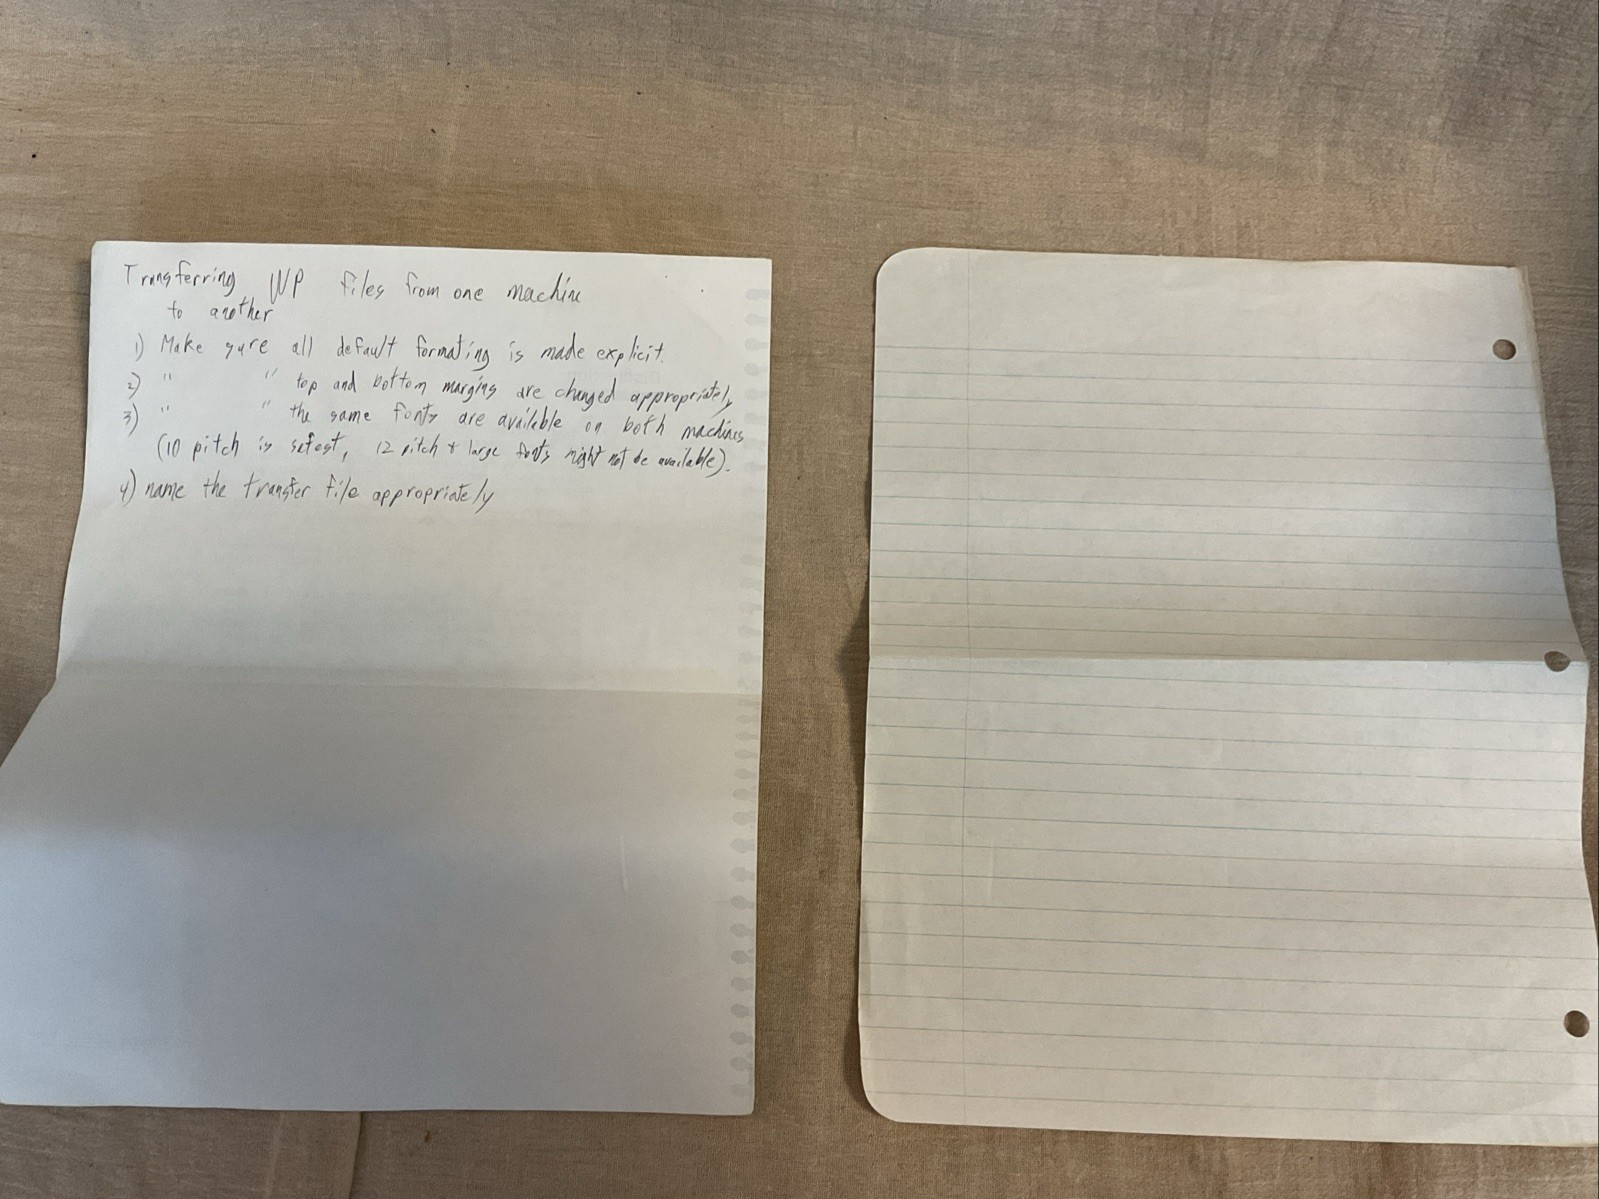 Transferring WP files from one machine
to another
1) Make sure all default formating is made explicit.
2) " " top and bottom margins are changed appropriately
3) " " the same fonts are available on both machines
(10 pitch is safest, 12 pitch & large fonts might not be available).
4) name the transfer file appropriately